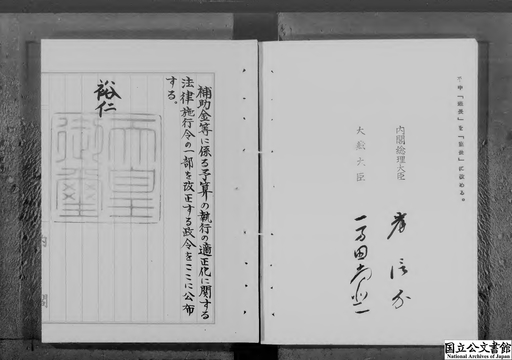 補助金等に係る予算の執行の適正化に関する
法律施行令の一部を改正する政令をここに公布
する。
裕仁
天皇
御璽
内閣
内閣総理大臣
大蔵大臣
岸信介
一万田尚登
国立公文書館
National Archives of Japan